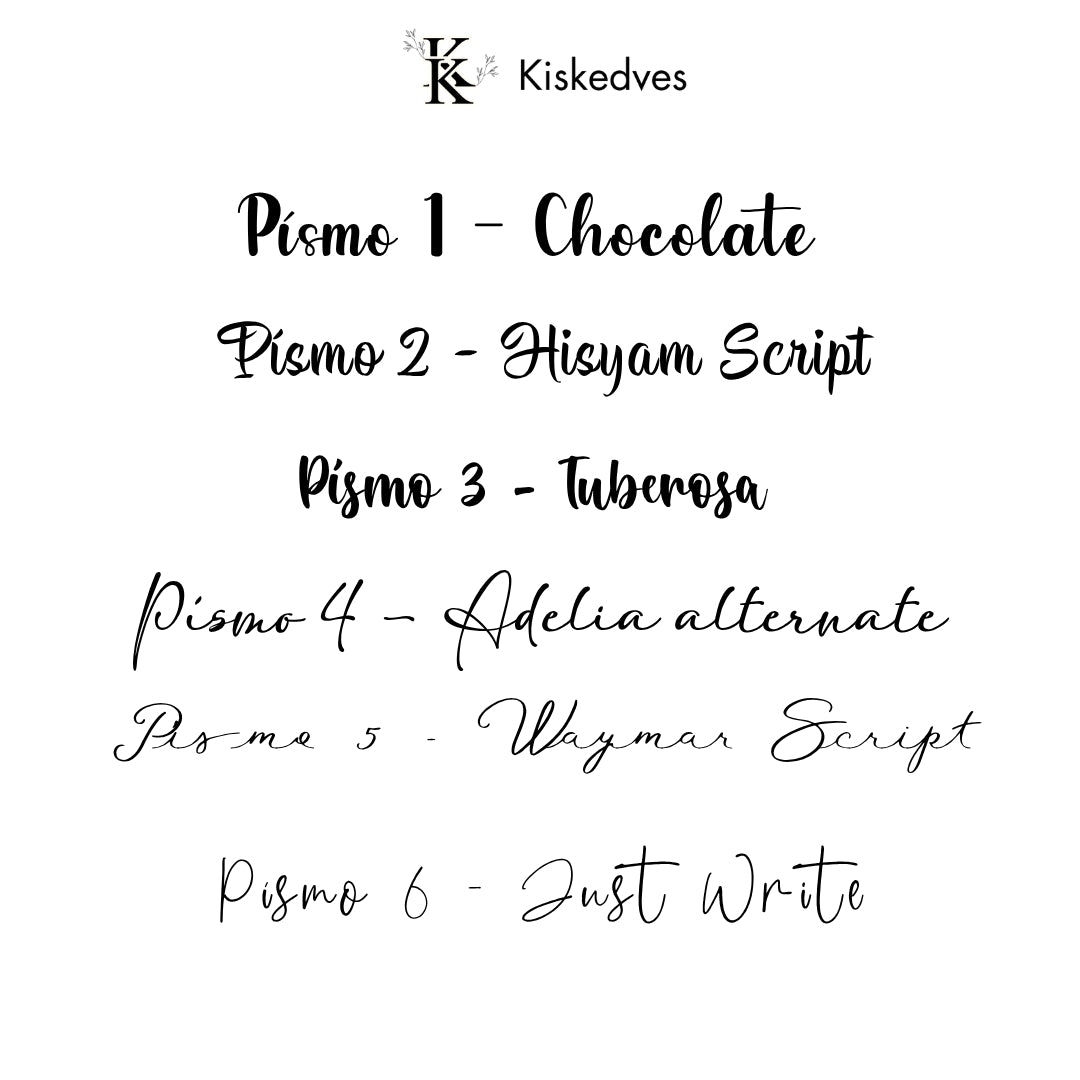 K Kiskedves
Písmo 1 - Chocolate
Písmo 2 - Hisyam Script
Písmo 3 - Tuberosa
Písmo 4 - Adelia alternate
Písmo 5 - Waymar Script
Písmo 6 - Just Write